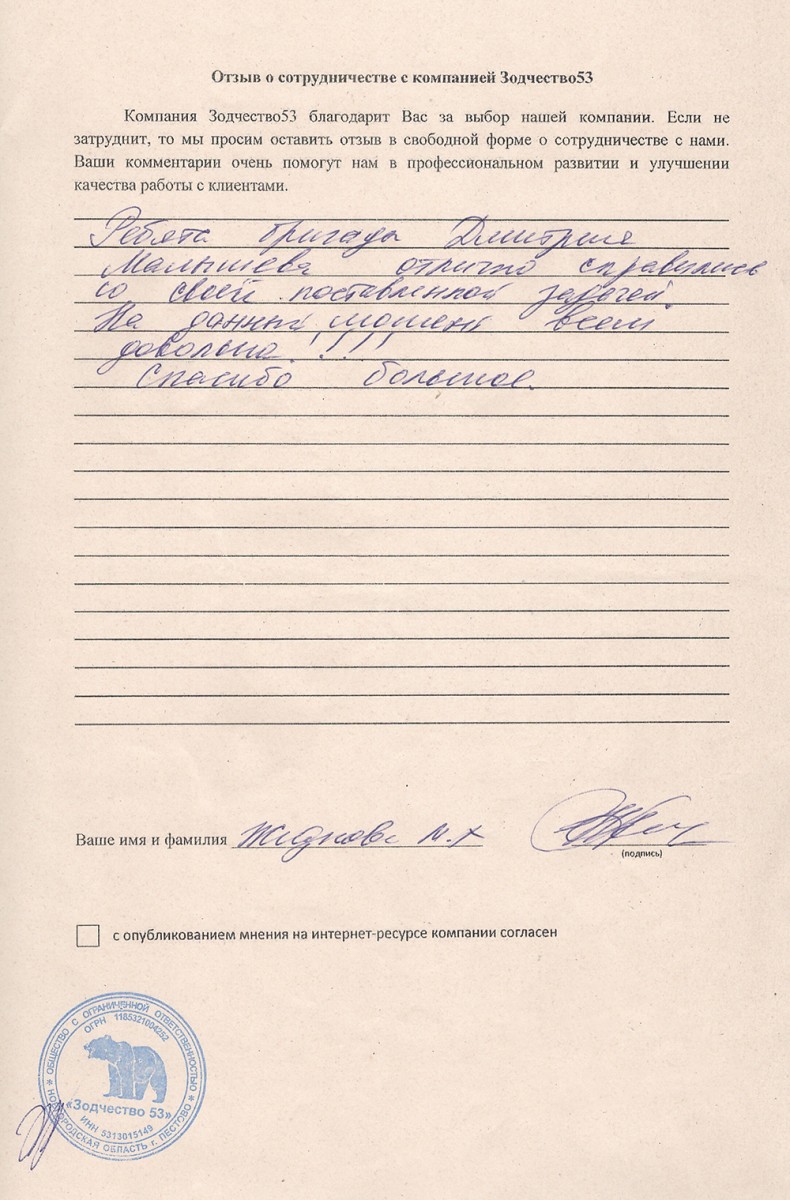 Отзыв о сотрудничестве с компанией Зодчество53
Компания Зодчество53 благодарит Вас за выбор нашей компании. Если не
затруднит, то мы просим оставить отзыв в свободной форме о сотрудничестве с нами.
Ваши комментарии очень помогут нам в профессиональном развитии и улучшении
качества работы с клиентами.
Ребята бригады Дмитрия
Малышева отлично справились
со своей поставленной задачей.
На данный момент всем
довольна!!!!!
Спасибо большое.
Ваше имя и фамилия
(подпись)
с опубликованием мнения на интернет-ресурсе компании согласен
ОБЩЕСТВО С ОГРАНИЧЕННОЙ ОТВЕТСТВЕННОСТЬЮ
ОГРН 1185321004252
«Зодчество 53»
ИНН 5313015149
НОВГОРОДСКАЯ ОБЛАСТЬ г. ПЕСТОВО